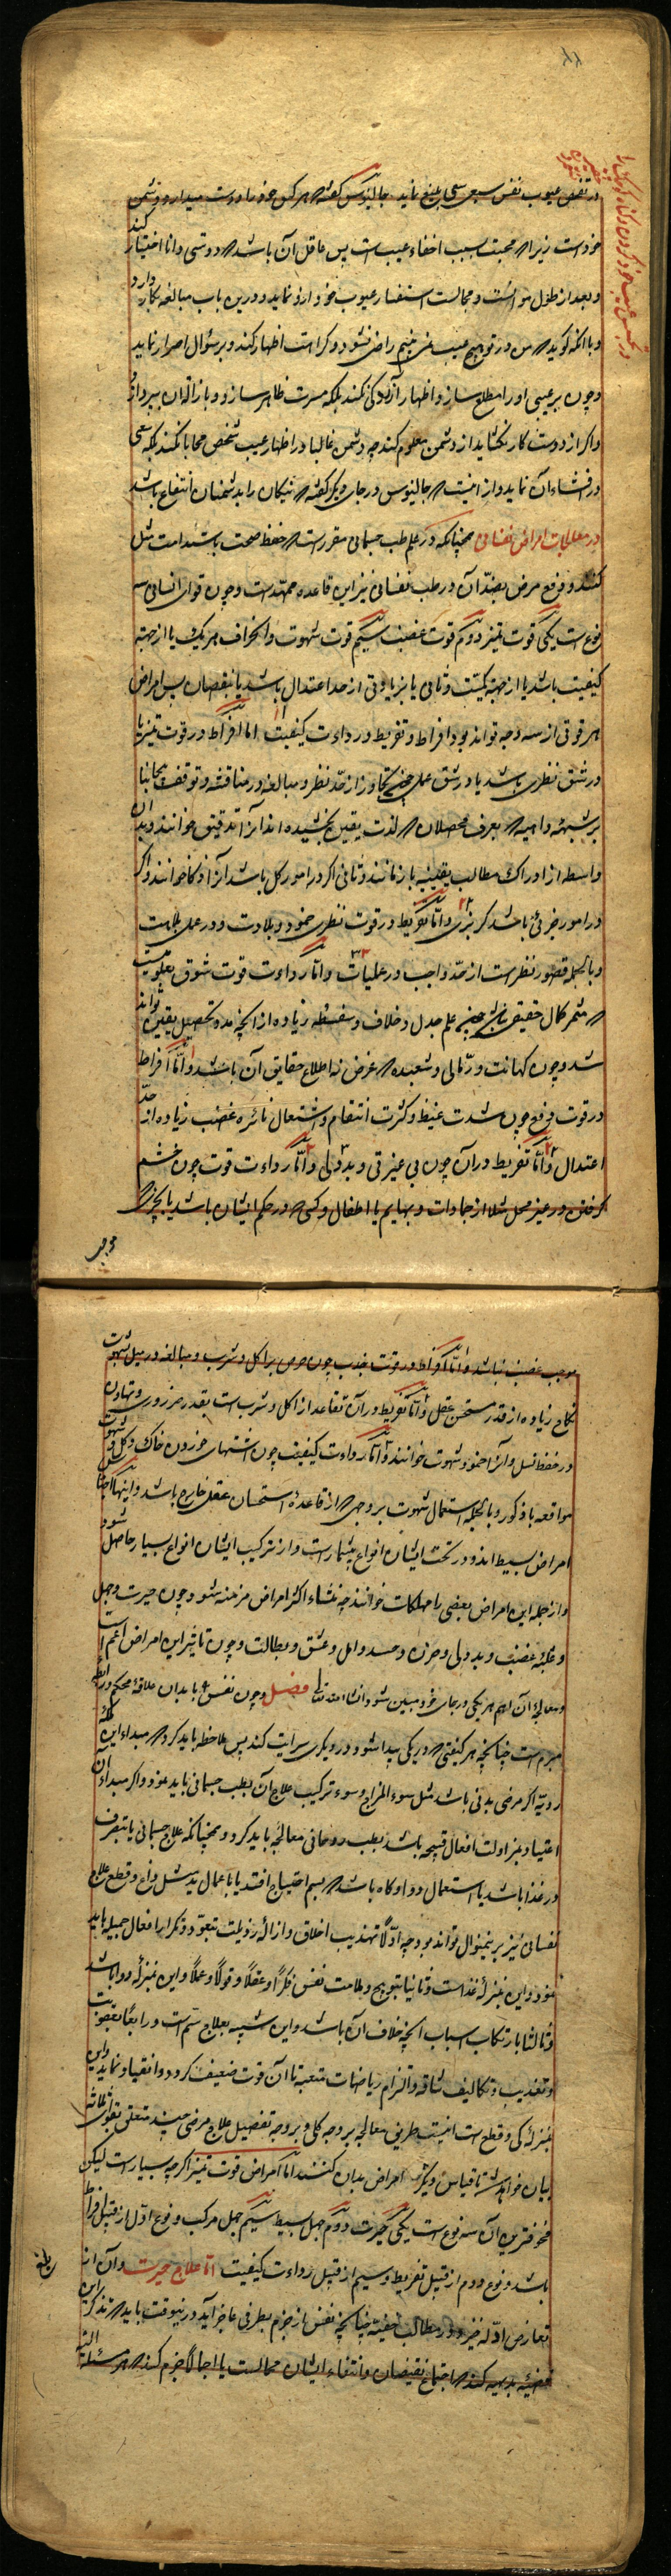 در تفحص عیوب نفس سعی بلیغ نماید جالینوس گفته هر کس خود را دوست میدارد و دشمن
خودست زیرا که محبت سبب اخفاء عیب است پس عاقل آن باشد که دوستی دانا اختیار کند
و بعد از طول موانست و مجالست استفسار عیوب خود ازو نماید و درین باب مبالغه بکار دارد
و با آنکه گوید که من در تو هیچ عیب نمی بینم راضی نشود و کراهت اظهار کند و بر سؤال اصرار نماید
و چون بر عیبی او را مطلع سازد اظهار آزردگی نکند بلکه مسرت ظاهر سازد و بازاله آن پردازد
و اگر از دوست کار نکشاید از دشمن معلوم کند چه دشمن غالبا در اظهار عیب شخص محابا نکند بلکه سعی
در افشاء آن نماید و از اینست که جالینوس در جای دیگر گفته که نیکان را بدشمنان انتفاع باشد
در معالجات امراض نفسانی همچنانکه در علم طب جسمانی مقررست که حفظ صحت باستدامت مثل
کنند و رفع مرض بضد آن در طب نفسانی نیز این قاعده ممهدست و چون قوای انسانی سه
نوع است یکی قوت تمیز دوم قوت غضب سیم قوت شهوت و انحراف هر یک یا از جهة
کیفیت باشد یا از جهة کمیت و ثانی یا بزیادتی از حد اعتدال باشد یا بنقصان پس امراض
هر قوتی از سه وجه تواند بود افراط و تفریط و رداءت کیفیت اما افراط در قوت تمیز یا
در شق نظری باشد یا در شق عملی چون تجاوز از حد نظر و مبالغه در مناقشه و توقف بجائها
بر شبهه واهیه که بعرف محصلان لذت یقین نچشیده اند آنرا تدقیق خوانند و بدان
واسطه از ادراک مطالب یقینیه باز مانند و ثانی اگر در امور کلی باشد آنرا ذکا خوانند و اگر
در امور جزئی باشد گربزی و اما تفریط در قوت نظری خمود و بلادت و در عملی بلاهت
و بالجمله قصور نظرست از حد واجب در عملیات و اما رداءت قوت شوق بعلومیست
که مثمر کمال حقیقی نباشد چون علم جدل و خلاف و سفسطه زیاده از آنچه ممد تحصیل یقین تواند
شد و چون کهانت و رمالی و شعبده که غرض نه اطلاع حقایق آن باشد و اما افراط
در قوت دفع چون شدت غیظ و کثرت انتقام و اشتعال نائره غضب زیاده از حد
اعتدال و اما تفریط در آن چون بی غیرتی و بددلی و اما رداءت قوت چون خشم
گرفتن در غیر محل مثلا از جمادات و بهایم یا اطفال و کسی که در حکم ایشان باشد یا بچیزی که
موجب
موجب غضب نباشد و اما افراط در قوت جذب چون حرص بر اکل و شرب و مبالغه در میل شهوت
نکاح زیاده از قدر مستحسن عقل و اما تفریط در آن تقاعد از اکل و شرب است بقدر ضروری و تهاون
در حفظ نسل و آنرا خمود شهوت خوانند و اما رداءت کیفیت چون اشتهای خوردن خاک و گل و شهوت
مواقعه با ذکور و بالجمله استعمال شهوت بر وجهی که از قاعدهٔ استحسان عقلی خارج باشد و اینها اجناس
امراض بسیط اند و در تحت ایشان انواع بیشمارست و از ترکیب ایشان انواع بسیار حاصل شود
و از جمله این امراض بعضی را مهلکات خوانند چه منشاء اکثر امراض مزمنه شود چون حیرت و جهل
و غلبهٔ غضب و بددلی و حزن و حسد و امل و عشق و بطالت و چون تاثیر این امراض اعم است
و معالجهٔ آن اهم هر یکی در جای خود مبین شود انشاء الله تعالی فصل و چون نفس را با بدن علاقهٔ محکم و رابطه
مبرم است چنانچه هر کیفیتی که در یکی پیدا شود در دیگری سرایت کند پس ملاحظه باید کرد که مبداء این ملکهٔ
ردیه اگر مرضی بدنی باشد مثل سوء المزاج و سوء ترکیب علاج آن بطب جسمانی باید نمود و اگر مبداء آن
اعتیاد بمزاولت افعال قبیحه باشد بطب روحانی معالجه باید کرد و همچنانکه علاج جسمانی یا بتصرف
در غذا باشد یا استعمال دوا و گاه باشد که بسم احتیاج افتد یا باعمال ید مثل داغ و قطع علاج
نفسانی نیز برینمنوال تواند بود چه اولا تهذیب اخلاق و ازالهٔ رذیلت بتعود و تکرار افعال جمیله باید
نمود و این بمنزلهٔ غذاست و ثانیا بتوبیخ و ملامت نفس فکرا و عقلا و قولا و عملا و این بمنزله دوا باشد
و ثالثا بارتکاب اسباب آنچه خلاف آن باشد و این شبیه بعلاج سم است و رابعا بعقوبت
و تعذیب و تکالیف شاقه و التزام ریاضات متعبه تا آن قوت ضعیف گردد و انقیاد نماید و این
بمنزله کی و قطع است اینست طریق معالجه بر وجه کلی و بر وجه تفصیل علاج مرضی چند متعلق بقوای ثلاثه
بیان خواهد شد تا قیاس دیگر امراض بدان کنند اما امراض قوت تمیز اگر چه بسیار است لیکن
مخوفترین آن سه نوع است یکی حیرت دوم جهل بسیط سیم جهل مرکب و نوع اول از قبیل افراط
باشد و نوع دوم از قبیل تفریط و سیم از قبیل رداءت کیفیت اما علاج حیرت و آن از
تعارض ادله خیزد در مطالب خفیه چنانچه نفس از جزم بطرفی عاجز آید درینوقت باید که تذکر این
قضیهٔ بدیهیه کند که اجتماع نقیضان و انتفاء ایشان محالست یا اجمالا جزم کند که هر مسئله البته